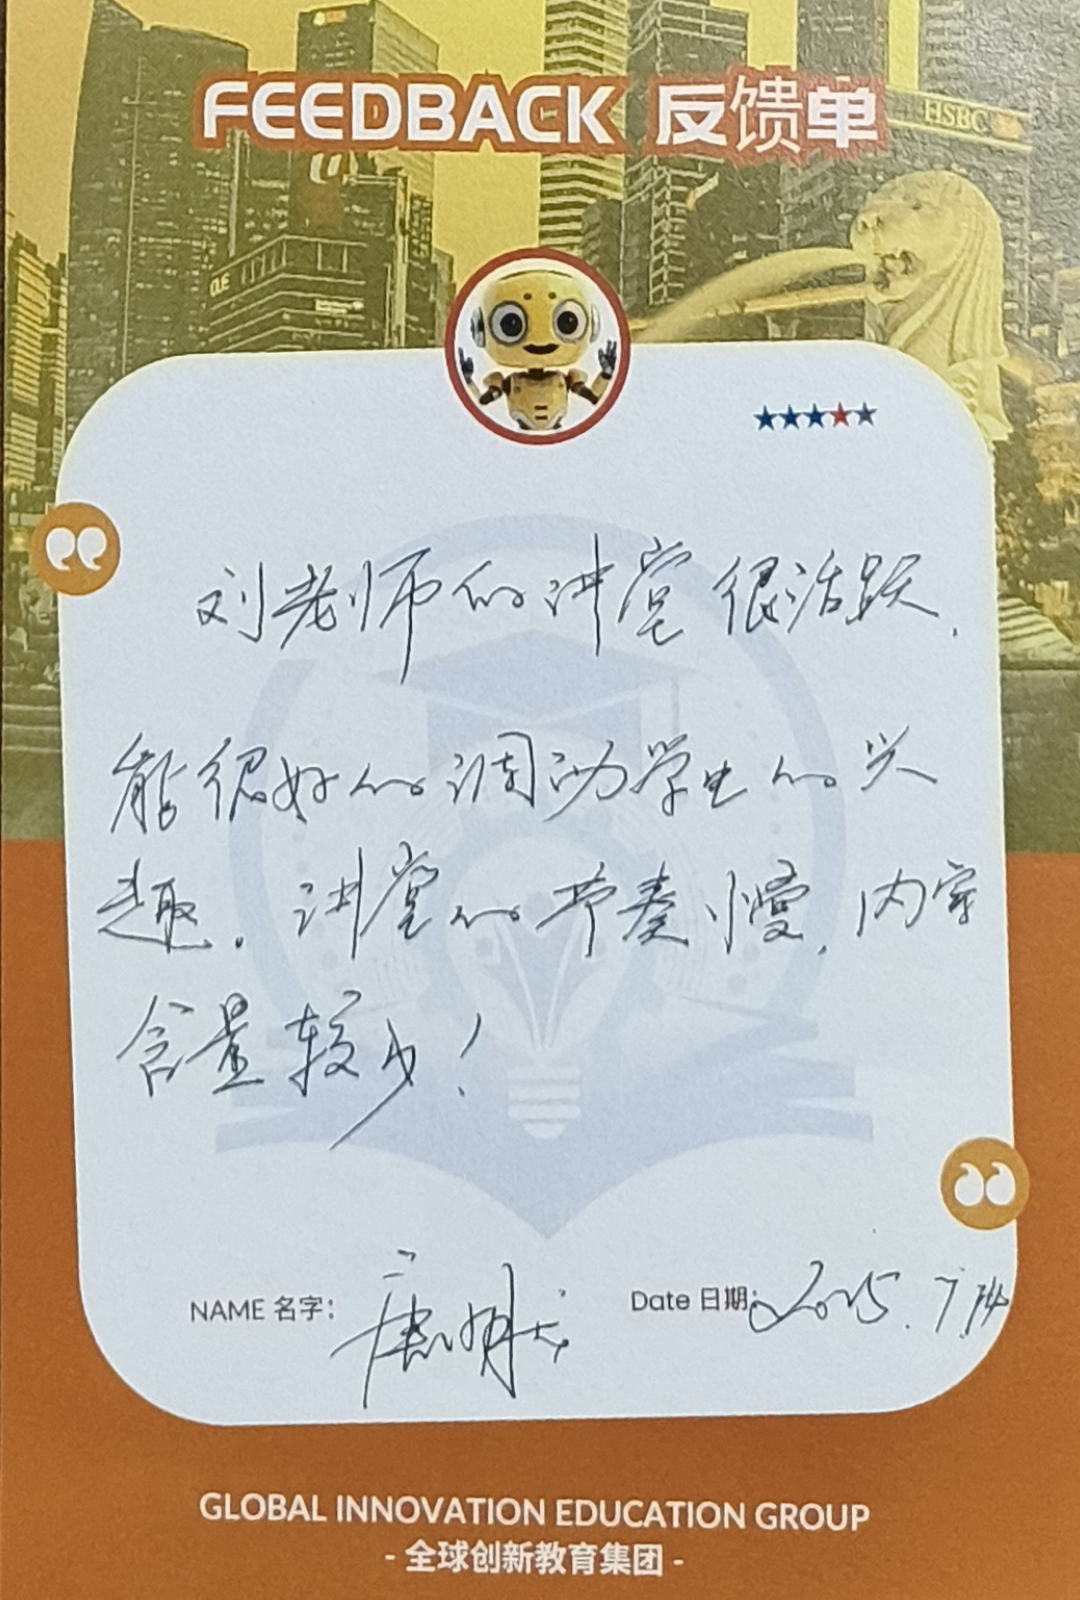 FEEDBACK 反馈单
HSBC
刘老师的讲堂很活跃.
能很好的调动学生的兴
趣. 讲堂的节奏慢, 内容
含量较少!
NAME 名字:
Date 日期: 2025. 7.14
GLOBAL INNOVATION EDUCATION GROUP
- 全球创新教育集团 -